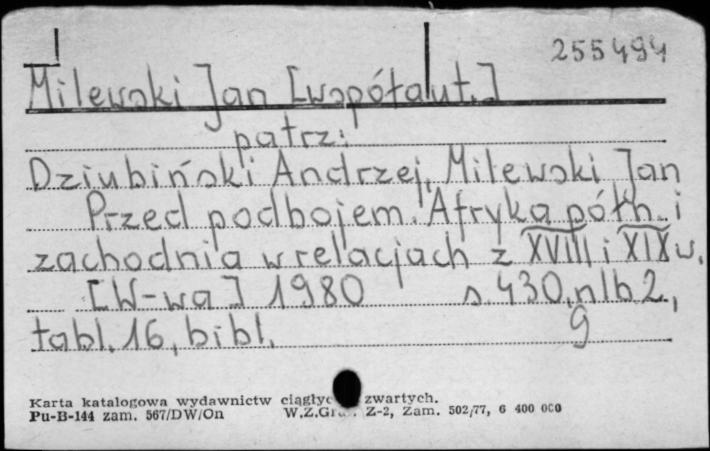 255494
Milewski Jan [współaut.]
patrz:
Dziubiński Andrzej, Milewski Jan
Przed podbojem. Afryka półn. i
zachodnia w relacjach z XVIII i XIX w.
[W-wa] 1980 s. 430, nlb 2,
tabl. 16, bibl. g
Karta katalogowa wydawnictw zwartych.
Pu-B-144 zam. 567/DW/On W.Z.Gr Z-2, Zam. 502/77, 6 400 000